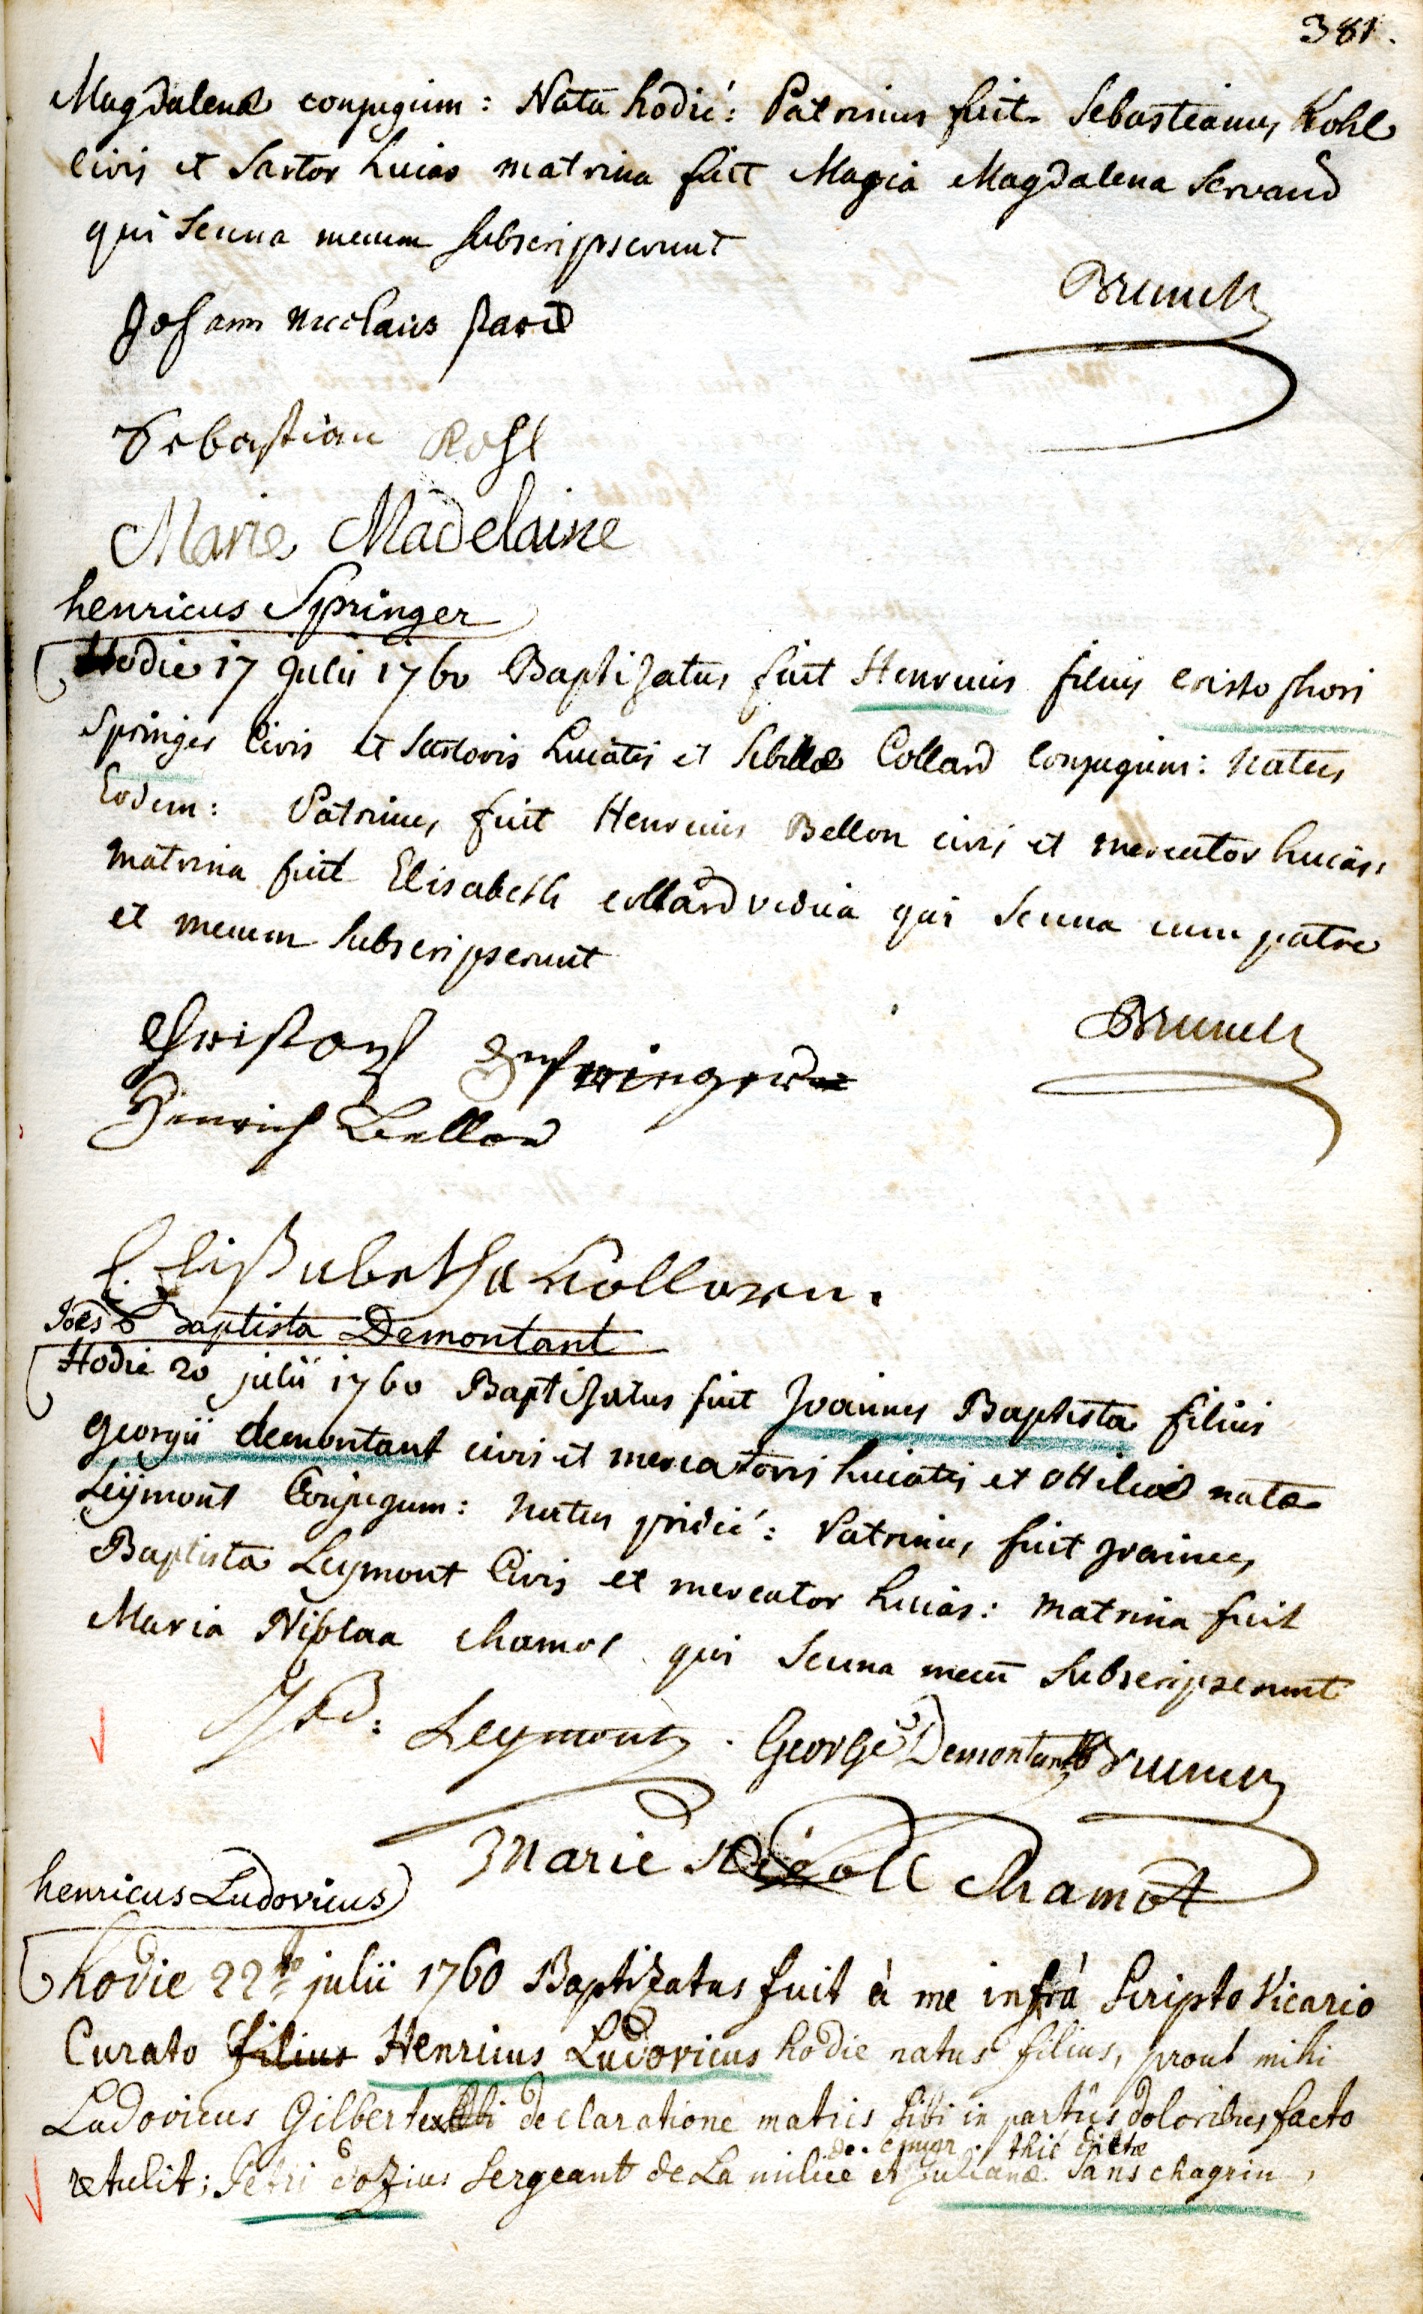 381.
Magdalenæ conjugum : Nata hodié : Patrinus fuit Sebastianus Kohl
civis et Sartor Lucias matrina fuit Maria Magdalena Servand
qui Seuna mecum subscripserunt
Brunck
Johann Nicolaus
Sebastian Kohl
Marie Madelaine
henricus Springer
Hodie 17 Julii 1760 Baptizatus fuit Henricus filius Cristophori
Springer Civis et Sartoris Luciatis et Sibillæ Collard Conjugum : natus
Eodem : Patrinus fuit Henricus Bellon civis et mercator Lucias,
matrina fuit Elisabeth Collard vidua qui Seuna cum patre
et mecum Subscripserunt
Brunck
Christoph Springer
Henrich Bellon
Elißabetha Colloren.
Joēs Baptista Demontant
Hodie 20 julii 1760 Baptizatus fuit Joannes Baptista filius
georgii demontant civis et mercatoris Luciatis et Ottiliæ natæ
Leymont Conjugum : natus pridié : Patrinus fuit Joannes
Baptista Leymont Civis et mercator Lucias : matrina fuit
Maria Niclaa chamot qui Seuna mecū Subscripserunt
Leymont . George Demontant Brunck
Marie Nicoll Chamot
henricus Ludovicus
hodie 22do julii 1760 Baptizatus fuit à me infrà Scripto Vicario
Curato filius Henricus Ludovicus hodie natus filius, prout mihi
Ludovicus Gilbert declaratione matris sibi in partûs doloribus facto
retulit ; Petri Sergeant de La milice et Julianæ dictæ Sans chagrin,